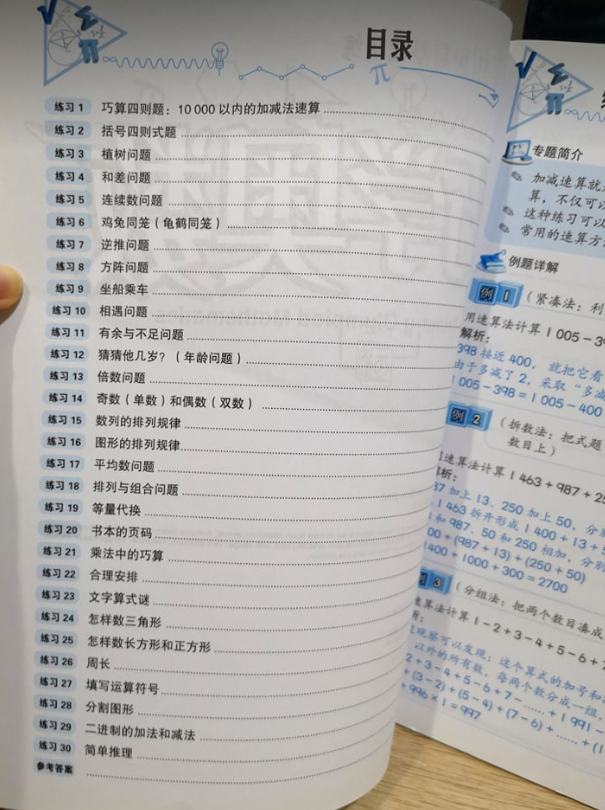 目录
练习 1 巧算四则题：10 000 以内的加减法速算
练习 2 括号四则式题
练习 3 植树问题
练习 4 和差问题
练习 5 连续数问题
练习 6 鸡兔同笼（龟鹤同笼）
练习 7 逆推问题
练习 8 方阵问题
练习 9 坐船乘车
练习 10 相遇问题
练习 11 有余与不足问题
练习 12 猜猜他几岁？（年龄问题）
练习 13 倍数问题
练习 14 奇数（单数）和偶数（双数）
练习 15 数列的排列规律
练习 16 图形的排列规律
练习 17 平均数问题
练习 18 排列与组合问题
练习 19 等量代换
练习 20 书本的页码
练习 21 乘法中的巧算
练习 22 合理安排
练习 23 文字算式谜
练习 24 怎样数三角形
练习 25 怎样数长方形和正方形
练习 26 周长
练习 27 填写运算符号
练习 28 分割图形
练习 29 二进制的加法和减法
练习 30 简单推理
参考答案
专题简介
加减速算就
算，不仅可以
这种练习可以
常用的速算方
例题详解
例 1（紧凑法：利
用速算法计算 1 005 − 39
解析：
398 接近 400，就把它看
由于多减了 2，采取“多减
1 005 − 398 = 1 005 − 400
例 2（拆数法：把式题
数目上）
速算法计算 1 463 + 987 + 25
析：
87 加上 13、250 加上 50，分别
1 463 拆开形成 1 400 + 13 + 5
和 987、50 和 250 相加，分别
00 + (987 + 13) + (250 + 50)
1400 + 1000 + 300 = 2700
3（分组法：把两个数目凑成
速算法计算 1 − 2 + 3 − 4 + 5 − 6 + 7
观察可以发现：这个算式的加号和
以外的所有数，每两个数分成一组，
2 + 3 − 4 + 5 − 6 + 7 − …… + 1 991 −
+ (3 − 2) + (5 − 4) + (7 − 6) + …… + (1
+ 996 × 1 = 997